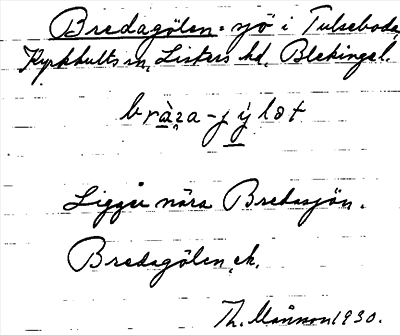 Bredagölen = sjö i Tulseboda,
Kyrkhults sn, Listers hd, Blekinge l.
Ligger nära Bredasjön.
Bredagölen, ek.
Th. 1930.